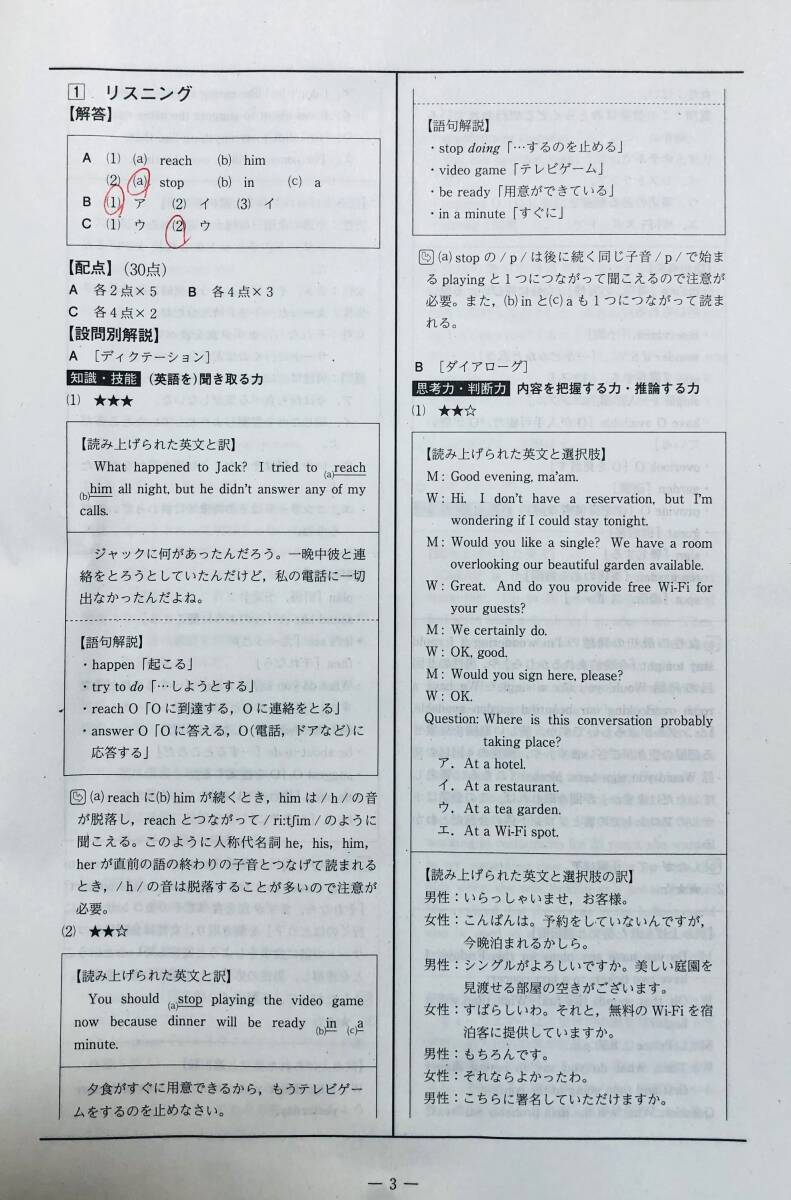 1 リスニング
【解答】
A (1) (a) reach (b) him
(2) (a) stop (b) in (c) a
B (1) ア (2) イ (3) イ
C (1) ウ (2) ウ
【配点】(30点)
A 各2点×5 B 各4点×3
C 各4点×2
【設問別解説】
A [ディクテーション]
知識・技能 (英語を)聞き取る力
(1) ★★★
【読み上げられた英文と訳】
What happened to Jack? I tried to (a)reach
(b)him all night, but he didn't answer any of my
calls.
ジャックに何があったんだろう。一晩中彼と連
絡をとろうとしていたんだけど，私の電話に一切
出なかったんだよね。
【語句解説】
・happen「起こる」
・try to do「…しようとする」
・reach O「Oに到達する，Oに連絡をとる」
・answer O「Oに答える，O(電話，ドアなど)に
応答する」
(a) reach に(b) him が続くとき，him は /h/ の音
が脱落し，reach とつながって /riːtʃim/ のように
聞こえる。このように人称代名詞 he, his, him,
her が直前の語の終わりの子音とつなげて読まれる
とき，/h/ の音は脱落することが多いので注意が
必要。
(2) ★★☆
【読み上げられた英文と訳】
You should (a)stop playing the video game
now because dinner will be ready (b)in (c)a
minute.
夕食がすぐに用意できるから，もうテレビゲー
ムをするのを止めなさい。
【語句解説】
・stop doing「…するのを止める」
・video game「テレビゲーム」
・be ready「用意ができている」
・in a minute「すぐに」
(a) stop の /p/ は後に続く同じ子音 /p/ で始ま
る playing と1つにつながって聞こえるので注意が
必要。また，(b) in と(c) a も1つにつながって読ま
れる。
B [ダイアローグ]
思考力・判断力 内容を把握する力・推論する力
(1) ★★☆
【読み上げられた英文と選択肢】
M : Good evening, ma'am.
W : Hi. I don't have a reservation, but I'm
wondering if I could stay tonight.
M : Would you like a single? We have a room
overlooking our beautiful garden available.
W : Great. And do you provide free Wi-Fi for
your guests?
M : We certainly do.
W : OK, good.
M : Would you sign here, please?
W : OK.
Question: Where is this conversation probably
taking place?
ア．At a hotel.
イ．At a restaurant.
ウ．At a tea garden.
エ．At a Wi-Fi spot.
【読み上げられた英文と選択肢の訳】
男性：いらっしゃいませ，お客様。
女性：こんばんは。予約をしていないんですが，
今晩泊まれるかしら。
男性：シングルがよろしいですか。美しい庭園を
見渡せる部屋の空きがございます。
女性：すばらしいわ。それと，無料の Wi-Fi を宿
泊客に提供していますか。
男性：もちろんです。
女性：それならよかったわ。
男性：こちらに署名していただけますか。
— 3 —